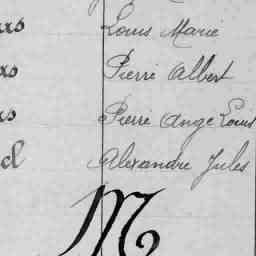 Louis Marie
Pierre Albert
Pierre Ange Louis
Alexandre Jules
M